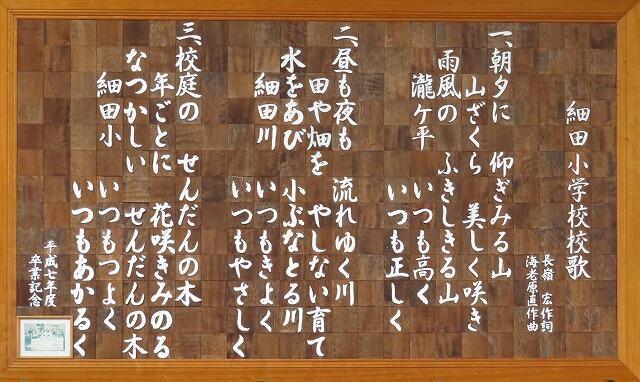 細田小学校校歌
長嶺 宏作詞
海老原直作曲
一、朝夕に 仰ぎみる山
山ざくら 美しく咲き
雨風の ふきしきる山
瀧ケ平 いつも高く
いつも正しく
二、昼も夜も 流れゆく川
田や畑を やしない育て
水をあび 小ぶなとる川
細田川 いつもきよく
いつもやさしく
三、校庭の せんだんの木
年ごとに 花咲きみのる
なつかしい せんだんの木
細田小 いつもつよく
いつもあかるく
平成七年度
卒業記念